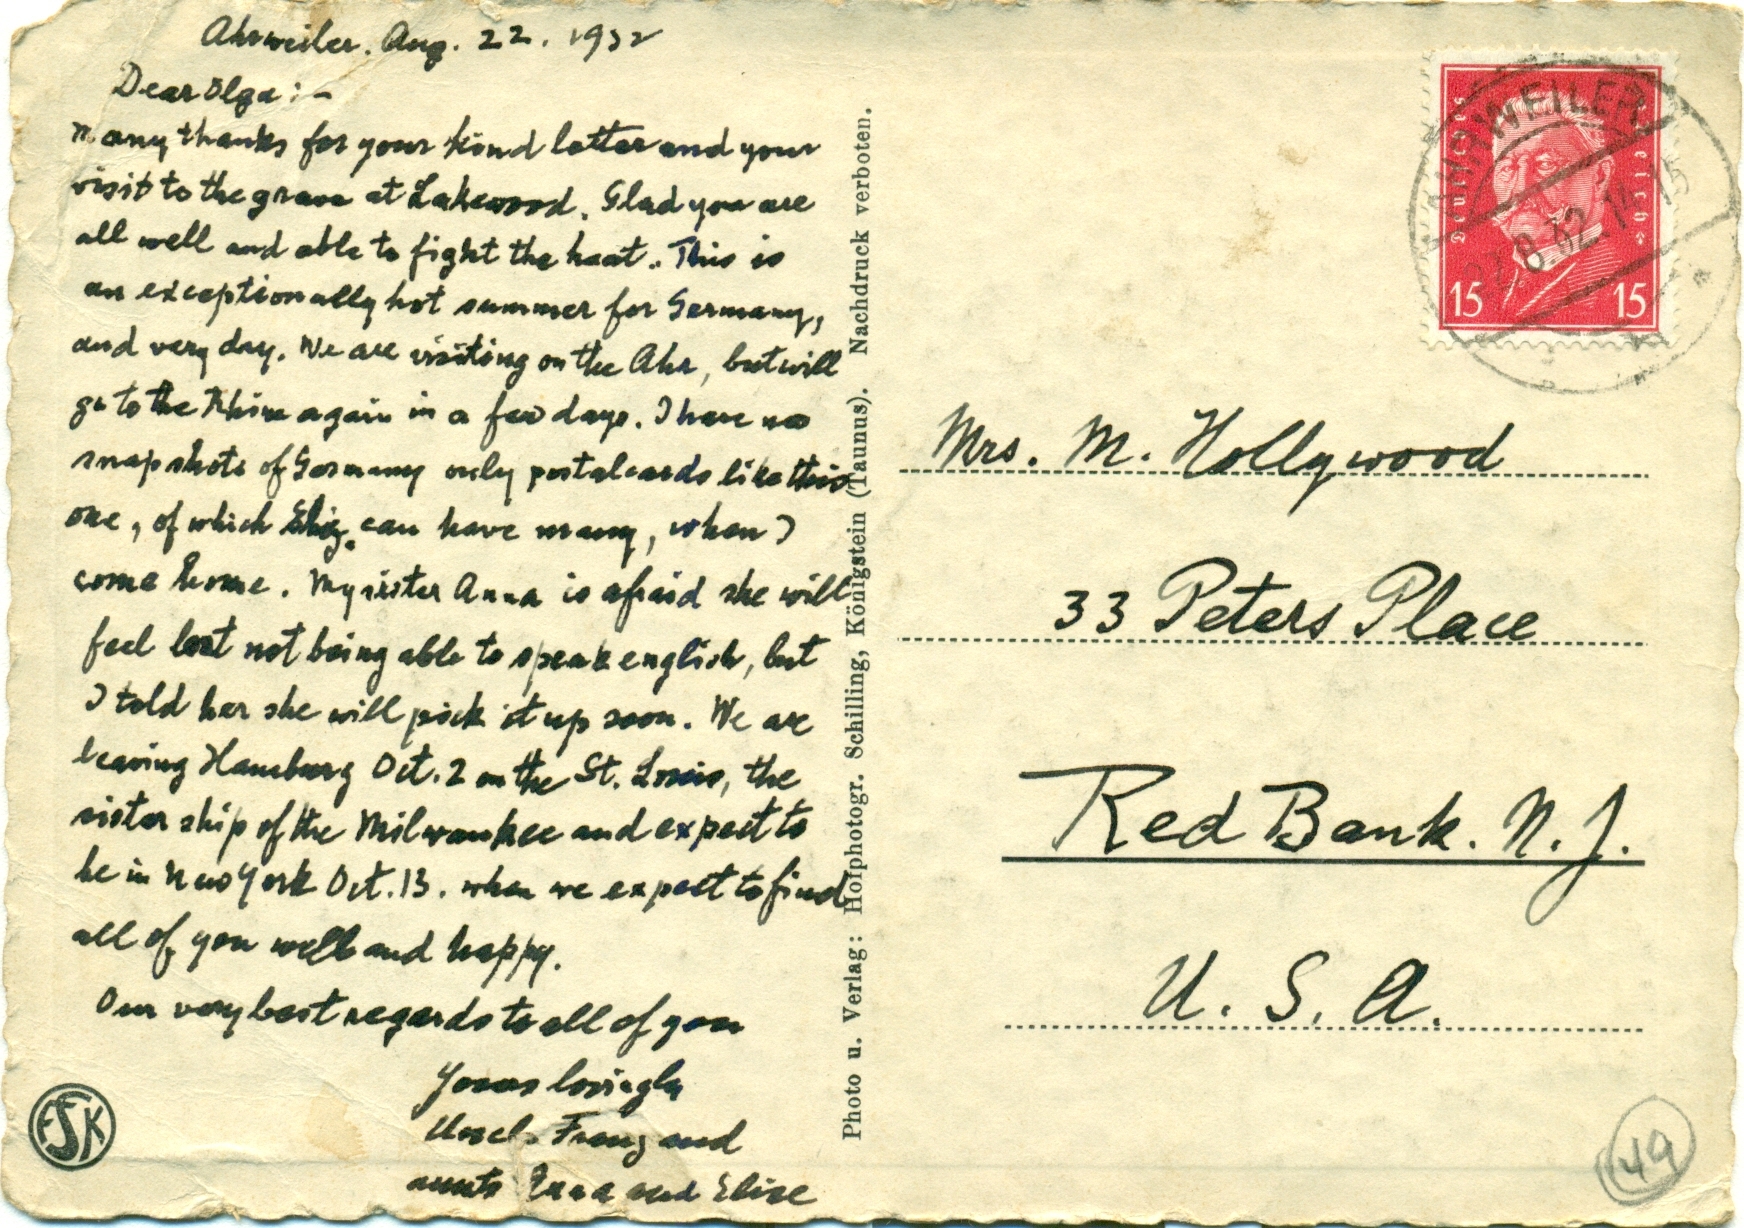 Ahrweiler. Aug. 22. 1932
Dear Olga : -
Many thanks for your kind letter and your
visit to the grave at Lakewood. Glad you are
all well and able to fight the heat.. This is
an exceptionally hot summer for Germany,
and very day. We are visiting on the Ahr, but will
go to the Rhine again in a few days. I have no
snapshots of Germany only postalcards like this
one, of which Eliz. can have many, when I
come home. My sister Anna is afraid she will
feel lost not being able to speak english, but
I told her she will pick it up soon. We are
leaving Hamburg Oct. 2 on the St. Louis, the
sister ship of the Milwaukee and expect to
be in New York Oct. 13. when we expect to find
all of you well and happy.
Our very best regards to all of you
Yours lovingly
Uncle Franz and
aunts Anna and Elise
FSK
Photo u. Verlag: Hofphotogr. Schilling, Königstein (Taunus). Nachdruck verboten.
Deutsches Reich
15 15
AHRWEILER
8.32.14-15
Mrs. M. Hollywood
33 Peters Place
Red Bank. N. J.
U. S. A.
49